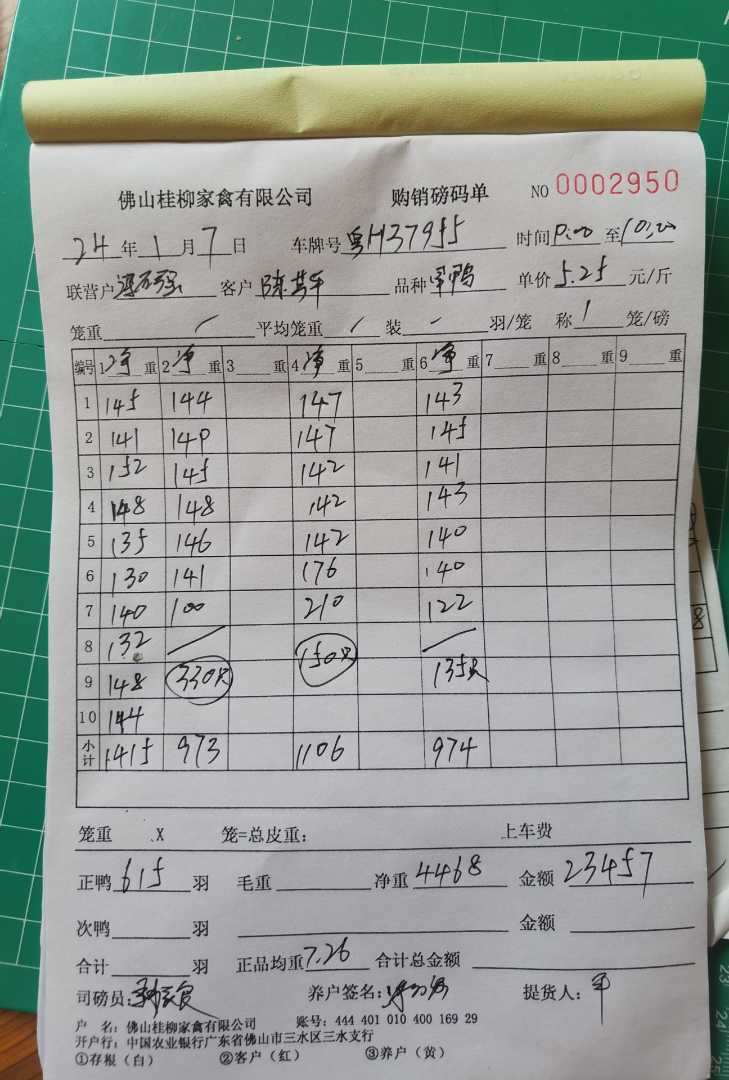 佛山桂柳家禽有限公司 购销磅码单 NO 0002950
24 年 1 月 7 日 车牌号 粤H37955 时间 至
联营户 客户 陈其 品种 鸭 单价 5.25 元/斤
笼重 / 平均笼重 / 装 / 羽/笼 称 1 笼/磅
编号 1 净 重 2 净 重 3 重 4 净 重 5 重 6 净 重 7 重 8 重 9 重
1 145 144 147 143
2 141 140 147 145
3 152 145 142 141
4 148 148 142 143
5 135 146 142 140
6 130 141 176 140
7 140 100 210 122
8 132 / 150只 /
9 148 330只 135只
10 144
小计 1415 973 1106 974
笼重 X 笼=总皮重: 上车费
正鸭 615 羽 毛重 净重 4468 金额 23457
次鸭 羽 金额
合计 羽 正品均重 7.26 合计总金额
司磅员: 养户签名: 提货人:
户 名: 佛山桂柳家禽有限公司 账号: 444 401 010 400 169 29
开户行: 中国农业银行广东省佛山市三水区三水支行
①存根（白） ②客户（红） ③养户（黄）